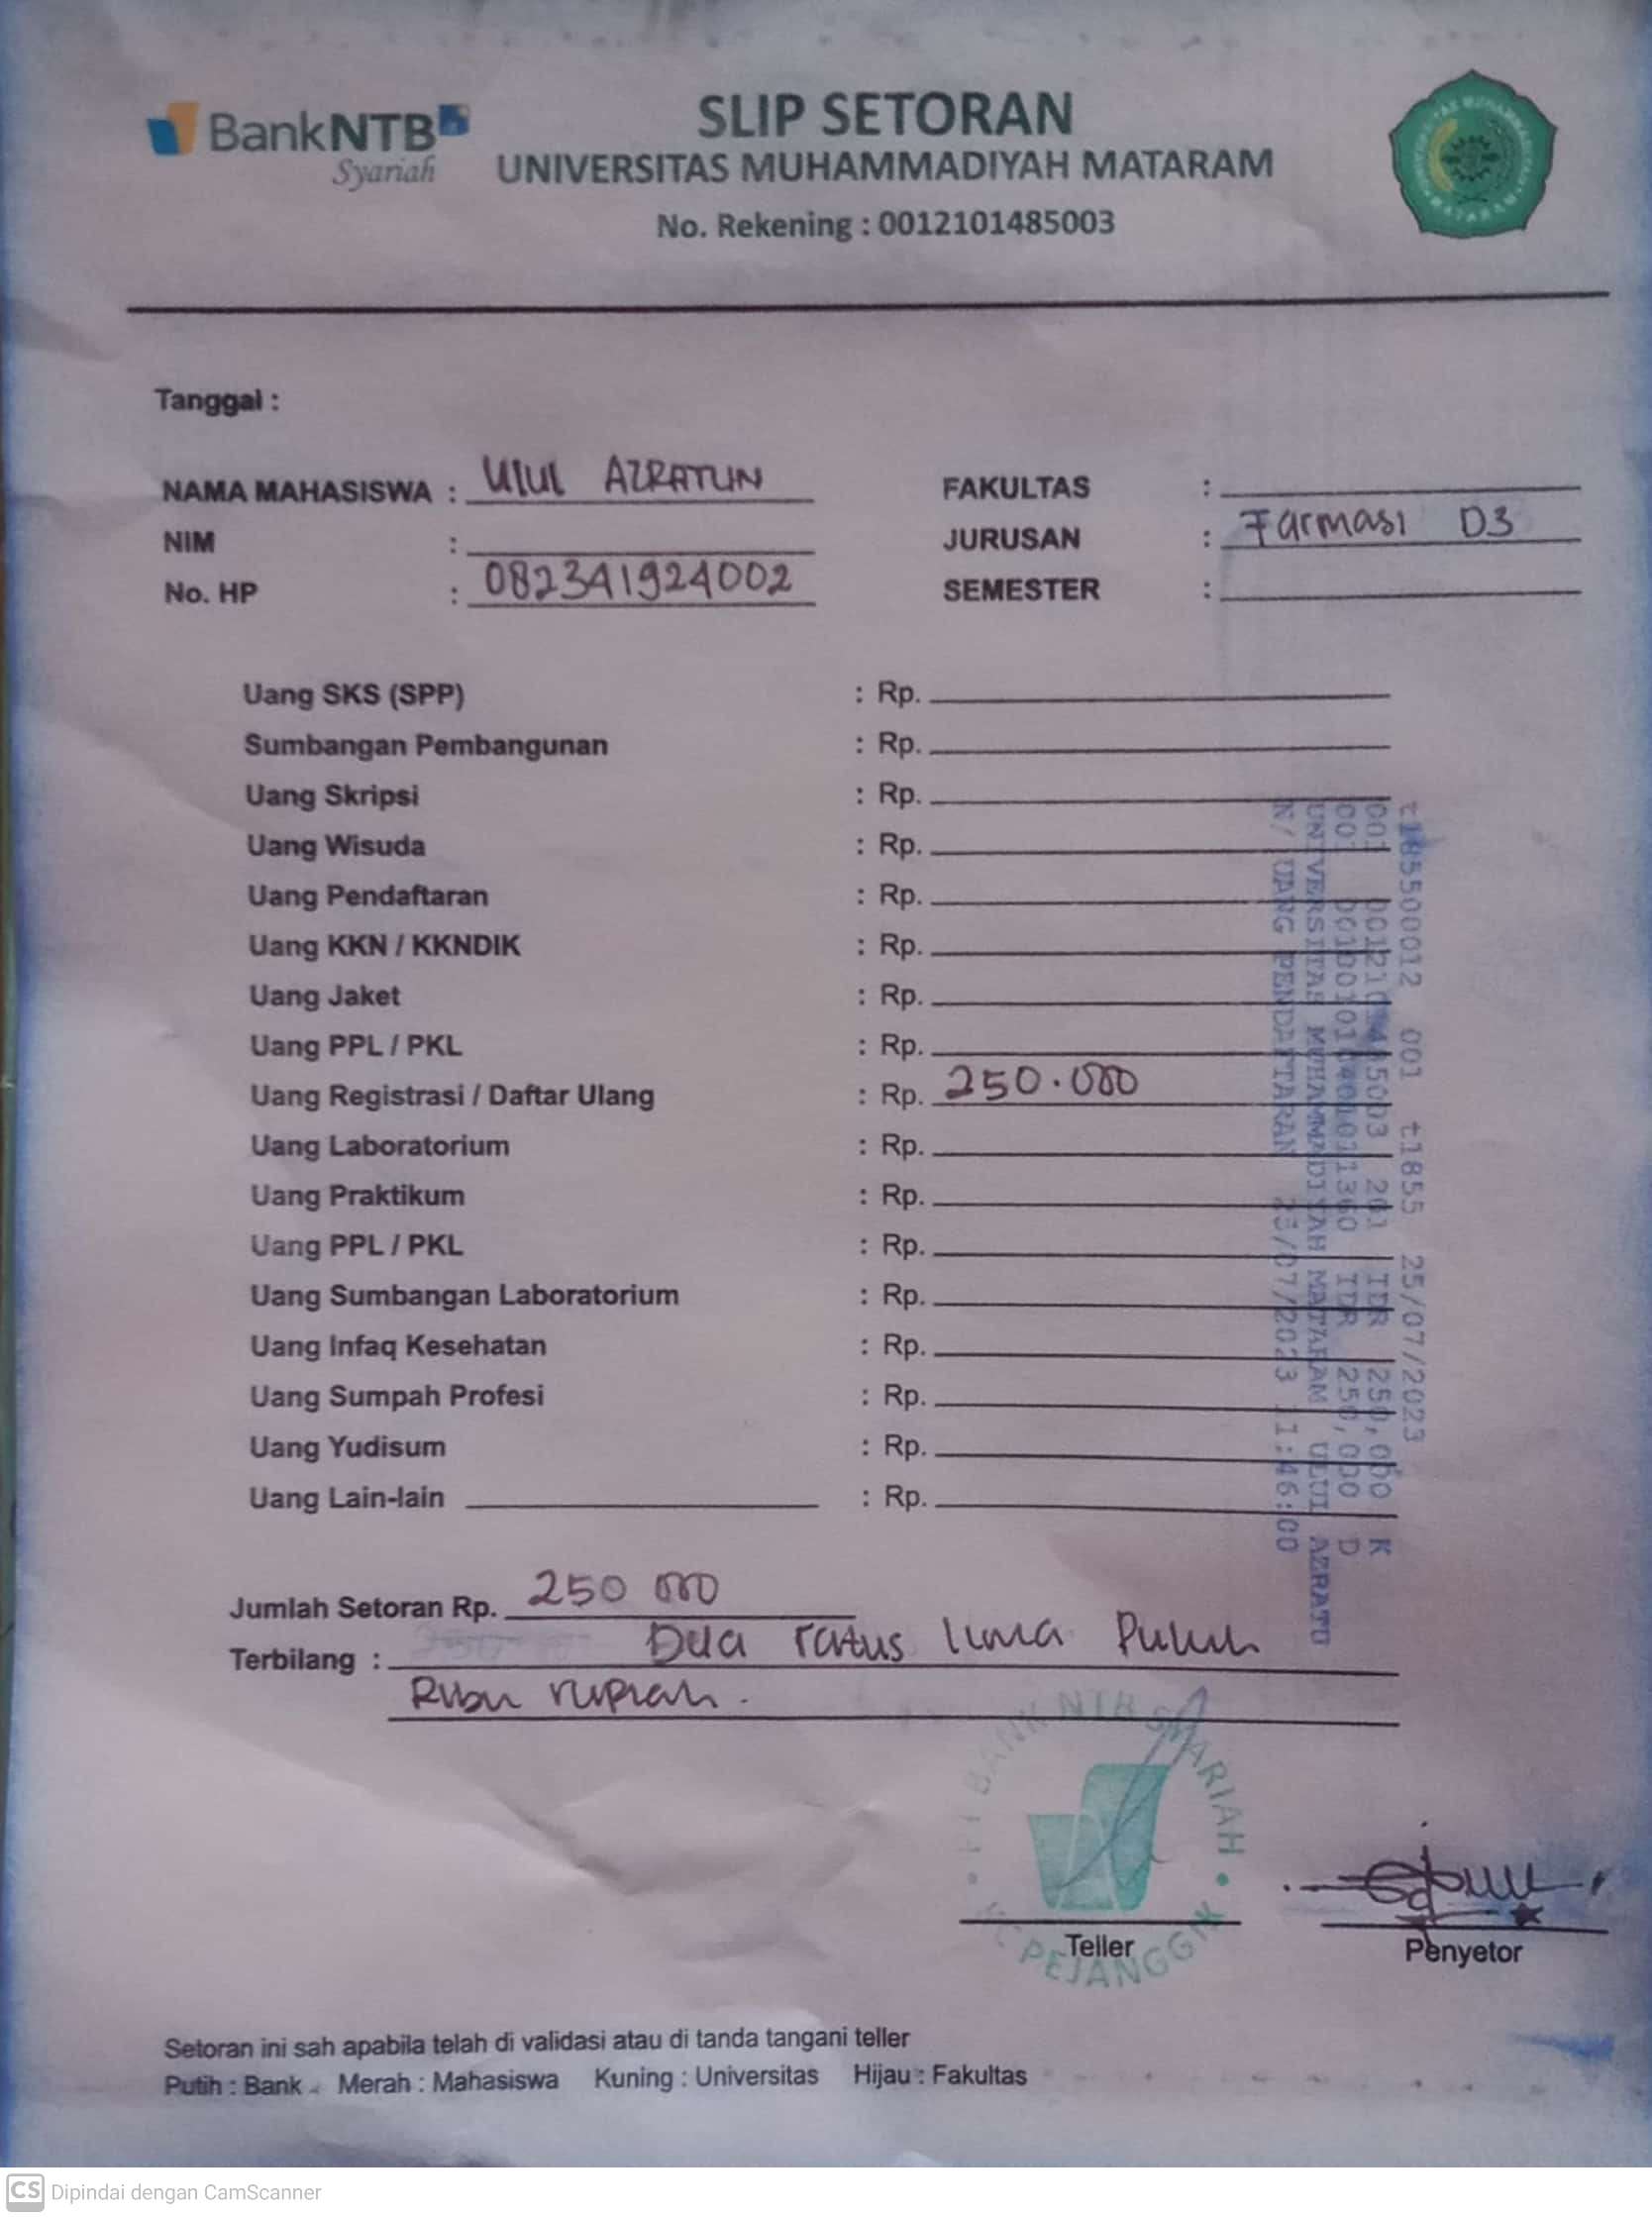 BankNTB
Syariah
SLIP SETORAN
UNIVERSITAS MUHAMMADIYAH MATARAM
No. Rekening : 0012101485003
Tanggal :
NAMA MAHASISWA : Ulul AZRATUN
NIM :
No. HP : 082341924002
FAKULTAS :
JURUSAN : Farmasi D3
SEMESTER :
Uang SKS (SPP) : Rp.
Sumbangan Pembangunan : Rp.
Uang Skripsi : Rp.
Uang Wisuda : Rp.
Uang Pendaftaran : Rp.
Uang KKN / KKNDIK : Rp.
Uang Jaket : Rp.
Uang PPL / PKL : Rp.
Uang Registrasi / Daftar Ulang : Rp. 250.000
Uang Laboratorium : Rp.
Uang Praktikum : Rp.
Uang PPL / PKL : Rp.
Uang Sumbangan Laboratorium : Rp.
Uang Infaq Kesehatan : Rp.
Uang Sumpah Profesi : Rp.
Uang Yudisum : Rp.
Uang Lain-lain : Rp.
t185500012 001 t1855 25/07/2023
001 0012101485003 201 IDR 250,000 K
001 IDR 250,000 D
UNIVERSITAS MUHAMMADIYAH MATARAM ULUL AZRATU
N/ UANG PENDAFTARAN 25/07/2023 11:46:00
Jumlah Setoran Rp. 250 000
Terbilang : Dua ratus lima Puluh
Ribu rupiah.
PT BANK NTB SYARIAH
KC PEJANGGIK
Teller
Penyetor
Setoran ini sah apabila telah di validasi atau di tanda tangani teller
Putih : Bank Merah : Mahasiswa Kuning : Universitas Hijau : Fakultas
CS Dipindai dengan CamScanner